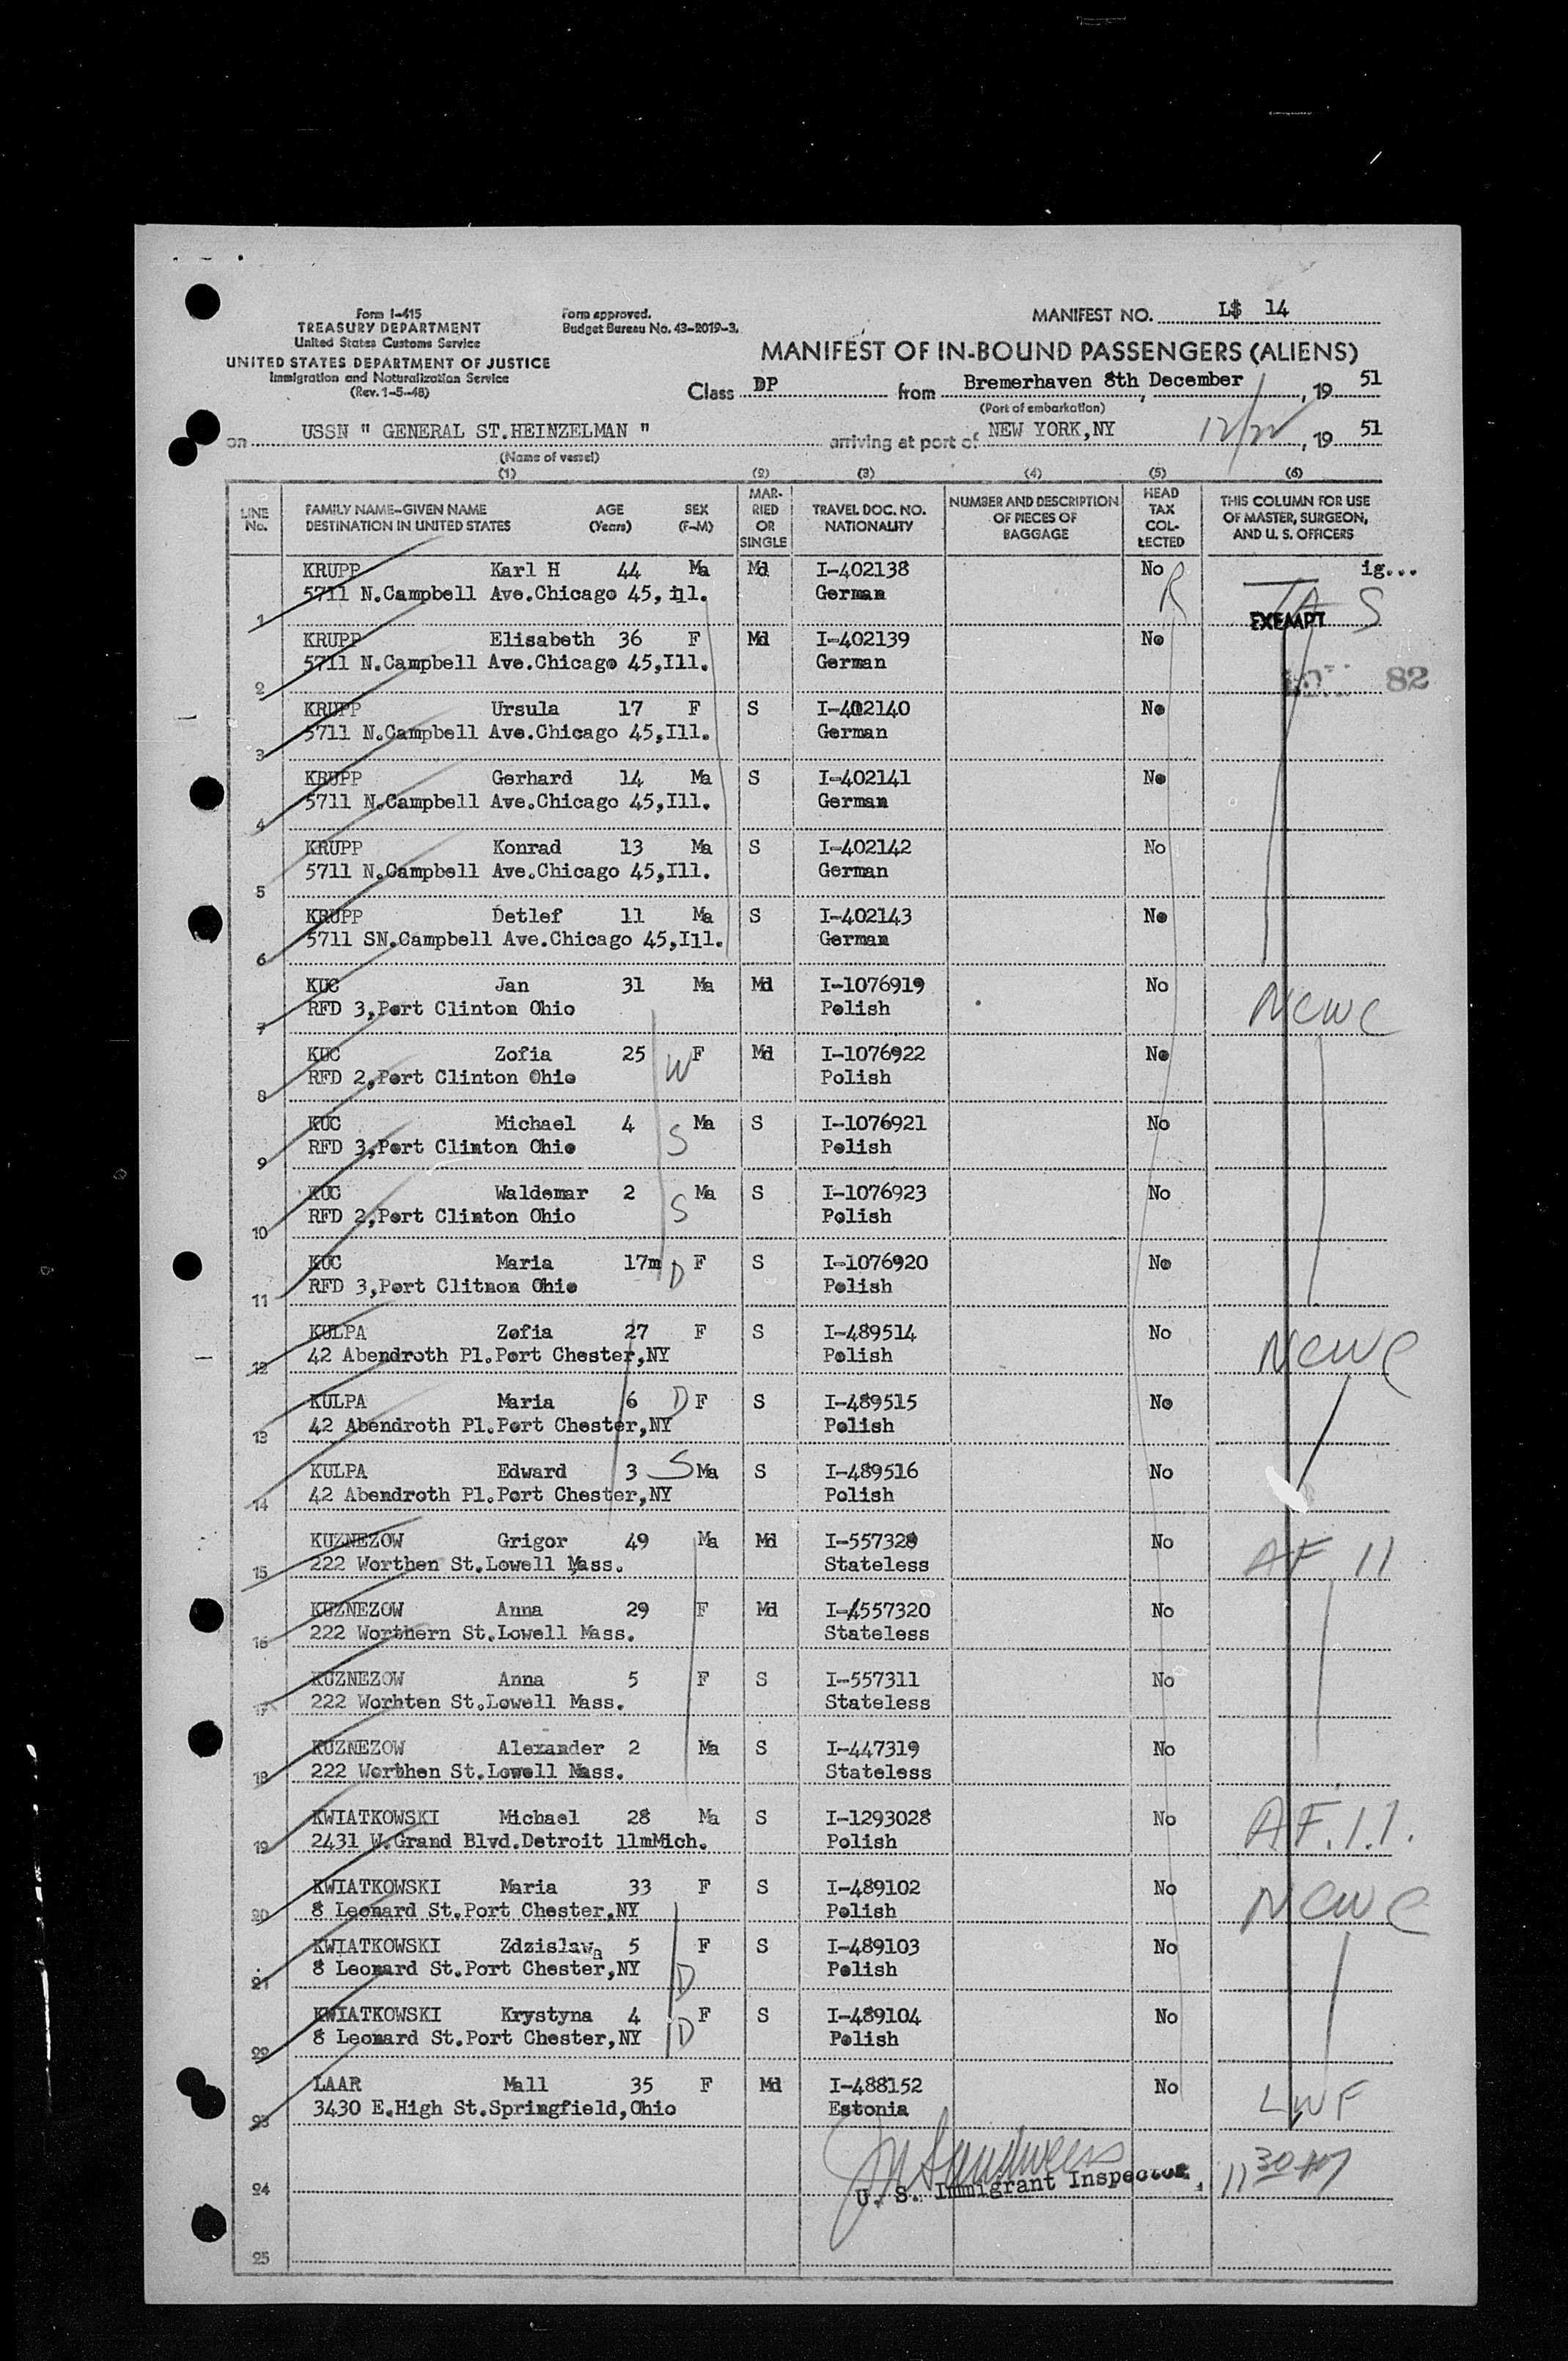 Form I-415
TREASURY DEPARTMENT
United States Customs Service
UNITED STATES DEPARTMENT OF JUSTICE
Immigration and Naturalization Service
(Rev. 1-5-48)
Form approved.
Budget Bureau No. 43-R019-3.
MANIFEST NO. L$ 14
MANIFEST OF IN-BOUND PASSENGERS (ALIENS)
Class DP from Bremerhaven 8th December, 19 51
(Port of embarkation)
on USSN " GENERAL ST.HEINZELMAN " arriving at port of NEW YORK,NY 12/22, 19 51
(Name of vessel)
(1) (2) (3) (4) (5) (6)
LINE No. FAMILY NAME-GIVEN NAME DESTINATION IN UNITED STATES AGE (Years) SEX (F-M) MARRIED OR SINGLE TRAVEL DOC. NO. NATIONALITY NUMBER AND DESCRIPTION OF PIECES OF BAGGAGE HEAD TAX COLLECTED THIS COLUMN FOR USE OF MASTER, SURGEON, AND U. S. OFFICERS
KRUPP Karl H 44 Ma Md I-402138 No ig...
1 5711 N.Campbell Ave.Chicago 45, ill. German R EXEMPT S
KRUPP Elisabeth 36 F Md I-402139 No
2 5711 N.Campbell Ave.Chicago 45,Ill. German 82
KRUPP Ursula 17 F S I-402140 No
3 5711 N.Campbell Ave.Chicago 45,Ill. German
KRUPP Gerhard 14 Ma S I-402141 No
4 5711 N.Campbell Ave.Chicago 45,Ill. German
KRUPP Konrad 13 Ma S I-402142 No
5 5711 N.Campbell Ave.Chicago 45,Ill. German
KRUPP Detlef 11 Ma S I-402143 No
6 5711 SN.Campbell Ave.Chicago 45,Ill. German
KUC Jan 31 Ma Md I-1076919 No NCWC
7 RFD 3,Port Clinton Ohio Polish
KUC Zofia 25 W F Md I-1076922 No
8 RFD 2,Port Clinton Ohio Polish
KUC Michael 4 S Ma S I-1076921 No
9 RFD 3,Port Clinton Ohio Polish
KUC Waldemar 2 S Ma S I-1076923 No
10 RFD 2,Port Clinton Ohio Polish
KUC Maria 17m D F S I-1076920 No
11 RFD 3,Port Clitnon Ohio Polish
KULPA Zofia 27 F S I-489514 No NCWC
12 42 Abendroth Pl.Port Chester,NY Polish
KULPA Maria 6 D F S I-489515 No
13 42 Abendroth Pl.Port Chester,NY Polish
KULPA Edward 3 S Ma S I-489516 No
14 42 Abendroth Pl.Port Chester,NY Polish
KUZNEZOW Grigor 49 Ma Md I-557328 No AF 11
15 222 Worthen St.Lowell Mass. Stateless
KUZNEZOW Anna 29 F Md I-4557320 No
16 222 Worthern St.Lowell Mass. Stateless
KUZNEZOW Anna 5 F S I-557311 No
17 222 Worhten St.Lowell Mass. Stateless
KUZNEZOW Alexander 2 Ma S I-447319 No
18 222 Worthen St.Lowell Mass. Stateless
KWIATKOWSKI Michael 28 Ma S I-1293028 No A.F.1.1.
19 2431 W.Grand Blvd.Detroit 11mMich. Polish
KWIATKOWSKI Maria 33 F S I-489102 No NCWC
20 8 Leonard St.Port Chester,NY Polish
KWIATKOWSKI Zdzislawa 5 F S I-489103 No
21 8 Leonard St.Port Chester,NY D Polish
KWIATKOWSKI Krystyna 4 F S I-489104 No
22 8 Leonard St.Port Chester,NY D Polish
LAAR Mall 35 F Md I-488152 No LWF
23 3430 E.High St.Springfield,Ohio Estonia
24 U. S. Immigrant Inspector, 11 30
25